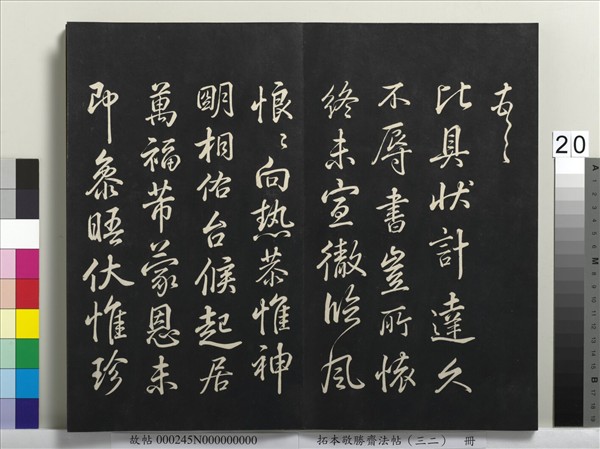 比具狀計達久
不辱書豈所懷
終未宣徹臨風
悢〻向熱恭惟神
明相佑台候起居
萬福芾蒙恩未
即參晤伏惟珍
20
A
M
B
故帖 000245N000000000
拓本敬勝齋法帖（三二） 冊